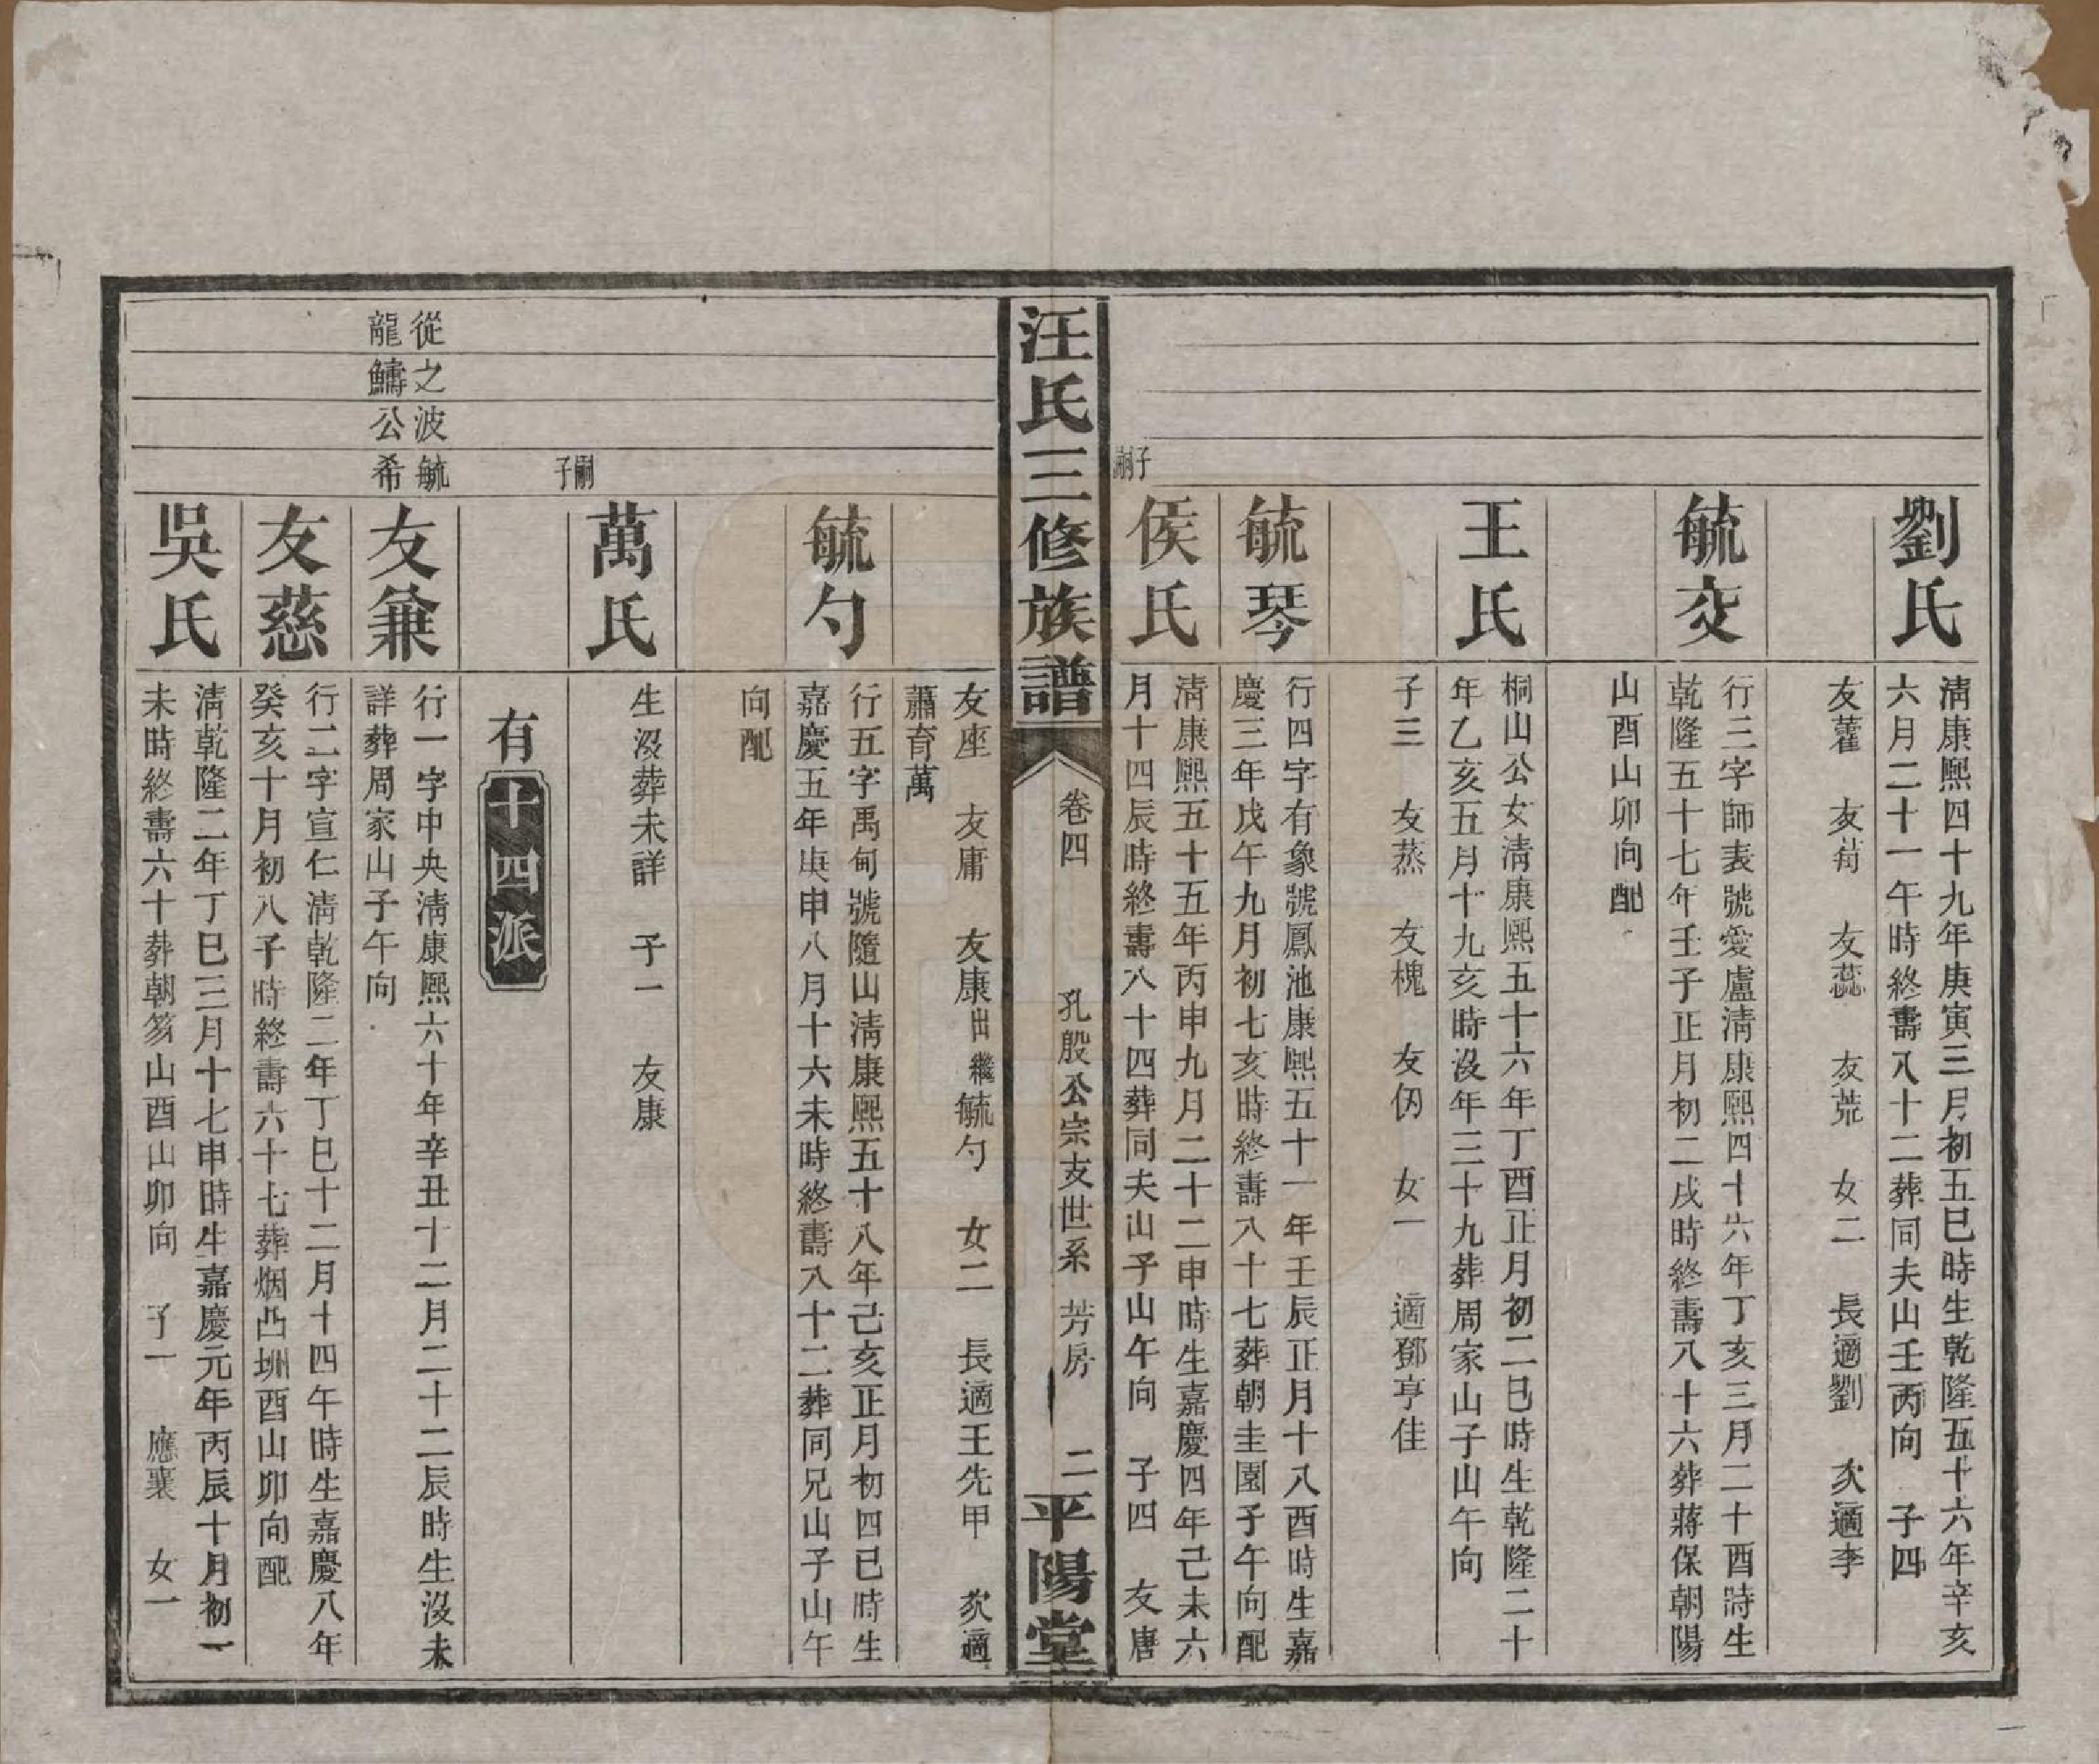 劉氏
清康熙四十九年庚寅三月初五巳時生乾隆五十六年辛亥
六月二十一午時終壽八十二葬同夫山壬丙向　子四
友藿　友荀　友蕊　友荒　女二　長適劉　次適李
毓交
行三字師表號愛盧清康熙四十六年丁亥三月二十酉時生
乾隆五十七年壬子正月初二戌時終壽八十六葬蔣保朝陽
山酉山卯向配
王氏
桐山公女清康熙五十六年丁酉正月初二巳時生乾隆二十
年乙亥五月十九亥時沒年三十九葬周家山子山午向
子三　友蒸　友槐　友仭　女一　適鄧亨佳
毓琴
行四字有象號鳳池康熙五十一年壬辰正月十八酉時生嘉
慶三年戊午九月初七亥時終壽八十七葬朝圭園子午向配
嗣子
侯氏
清康熙五十五年丙申九月二十二申時生嘉慶四年己未六
月十四辰時終壽八十四葬同夫山子山午向　子四　友唐
汪氏三修族譜
卷四
孔殷公宗支世系　芳房　二
平陽堂
友座　友庸　友康出繼毓勺　女二　長適王先甲　次適
蕭育萬
毓勺
行五字禹甸號隨山清康熙五十八年己亥正月初四巳時生
嘉慶五年庚申八月十六未時終壽八十二葬同兄山子山午
向配
嗣子
萬氏
生沒葬未詳　子一　友康
有十四派
從之波毓
龍鱅公希
友兼
行一字中央清康熙六十年辛丑十二月二十二辰時生沒未
詳葬周家山子午向
友慈
行二字宣仁清乾隆二年丁巳十二月十四午時生嘉慶八年
癸亥十月初八子時終壽六十七葬烟凸坳酉山卯向配
吳氏
清乾隆二年丁巳三月十七申時生嘉慶元年丙辰十月初一
未時終壽六十葬朝笏山酉山卯向　子一　應襄　女一